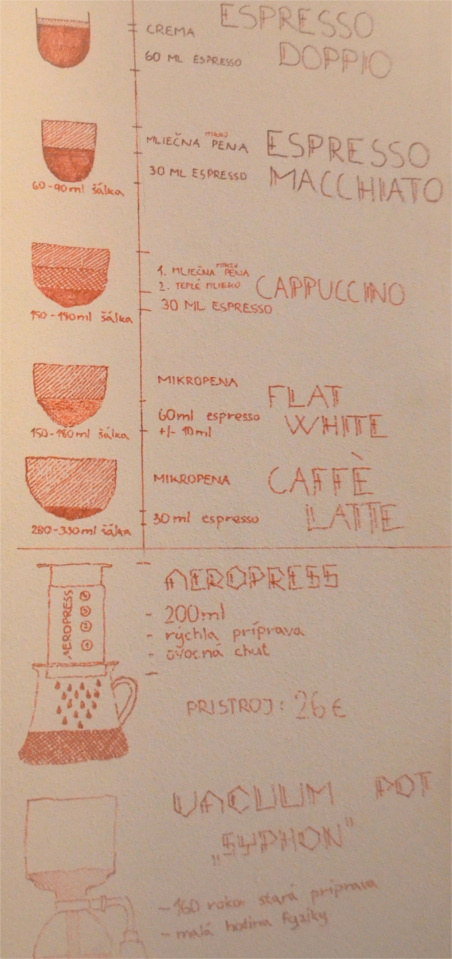 ESPRESSO
DOPPIO
CREMA
60 ML ESPRESSO
ESPRESSO
MACCHIATO
MIKRO
MLIEČNA PENA
30 ML ESPRESSO
60-90ml šálka
CAPPUCCINO
MIKRO
1. MLIEČNA PENA
2. TEPLÉ MLIEKO
30 ML ESPRESSO
150-190ml šálka
FLAT
WHITE
MIKROPENA
60ml espresso
+/- 10ml
150-160ml šálka
CAFFÈ
LATTE
MIKROPENA
30ml espresso
280-330ml šálka
AEROPRESS
AEROPRESS
- 200ml
- rýchla príprava
- ovocná chuť
PRISTROJ: 26€
VACUUM POT
„SYPHON"
- 160 roka stará príprava
- malá hodina fyziky